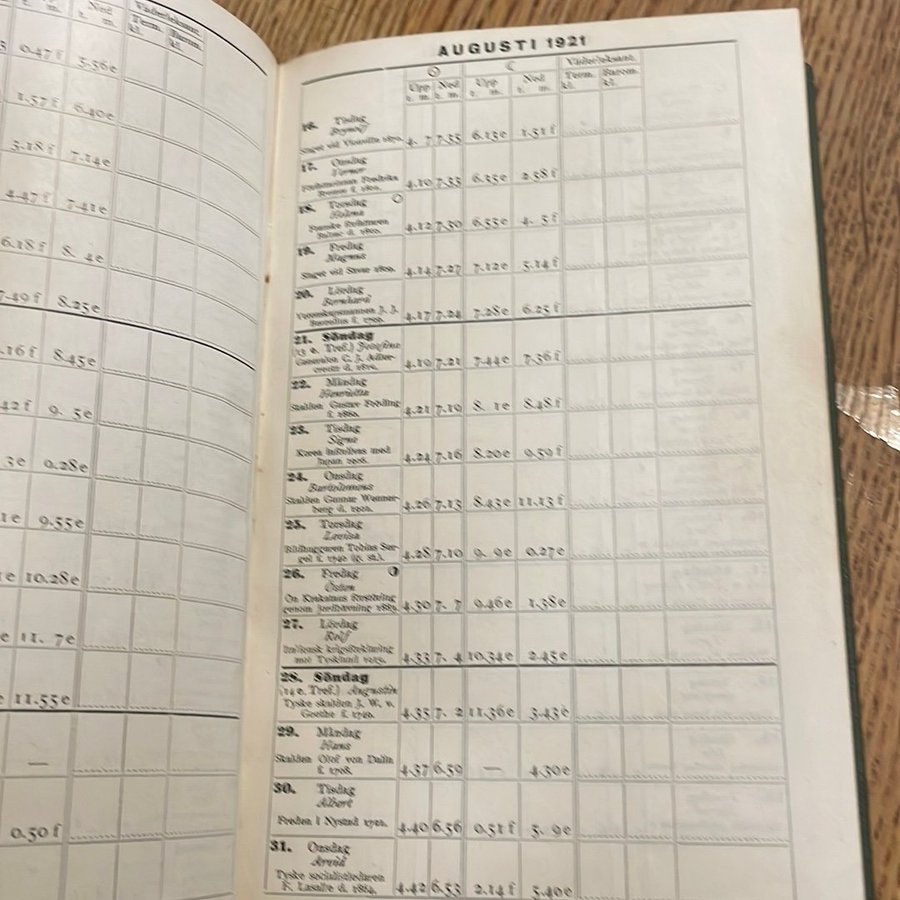 t. m.
Ned
t. m.
Väderleksant.
Term. Barom.
kl. kl.
0.47 f 5.56e
1.57 f 6.40e
3.18 f 7.14e
4.47 f 7.41e
6.18 f 8. 4e
7.49 f 8.25e
.16 f 8.45e
42 f 9. 5e
3e 9.28e
1e 9.55e
e 10.28e
e 11. 7e
e 11.55e
—
0.50 f
AUGUSTI 1921
☉ ☾ Väderleksant.
Upp Ned Upp Ned Term. Barom.
t. m. t. m. t. m. t. m. kl. kl.
16. Tisdag
Brynolf
4. 7 7.35 6.13e 1.31 f
17. Onsdag
Verner
Författarinnan Fredrika
Bremer f. 1801. 4.10 7.33 6.35e 2.58 f
18. Torsdag
Helena
Franske författaren
4.12 7.30 6.55e 4. 5 f
19. Fredag
Magnus
Slaget vid Sävar 1809. 4.14 7.27 7.12e 5.14 f
20. Lördag
Bernhard
Vetenskapsmannen J. J.
Berzelius f. 1779. 4.17 7.24 7.28e 6.25 f
21. Söndag
(13 e. Tref.) Josefina
Generalen C. J. Adler-
creutz d. 1815. 4.19 7.21 7.44e 7.36 f
22. Måndag
Henrietta
Skalden Gustav Fröding
f. 1860. 4.21 7.19 8. 1e 8.48 f
23. Tisdag
Signe
Korea införlivas med
Japan 4.24 7.16 8.20e 9.59 f
24. Onsdag
Bartolomeus
Skalden Gunnar Wenner-
berg d. 1901. 4.26 7.13 8.43e 11.13 f
25. Torsdag
Lovisa
Bildhuggaren Tobias Ser-
gel f. 1740 (g. st.). 4.28 7.10 9. 9e 0.27e
26. Fredag
Östen
On Krakataus förstöring
genom jordbävning 1883. 4.30 7. 7 9.46e 1.38e
27. Lördag
Rolf
Italiensk krigsförklaring
mot Tyskland 4.33 7. 4 10.34e 2.45e
28. Söndag
(14 e. Tref.) Augustin
Tyske skalden J. W. v.
Goethe f. 4.35 7. 2 11.36e 3.43e
29. Måndag
Hans
Skalden Olof von Dalin
f. 1708. 4.37 6.59 — 4.30e
30. Tisdag
Albert
Freden i Nystad 1721. 4.40 6.56 0.51 f 5. 9e
31. Onsdag
Arvid
Tyske socialistledaren
F. Lasalle d. 1864. 4.42 6.53 2.14 f 5.40e